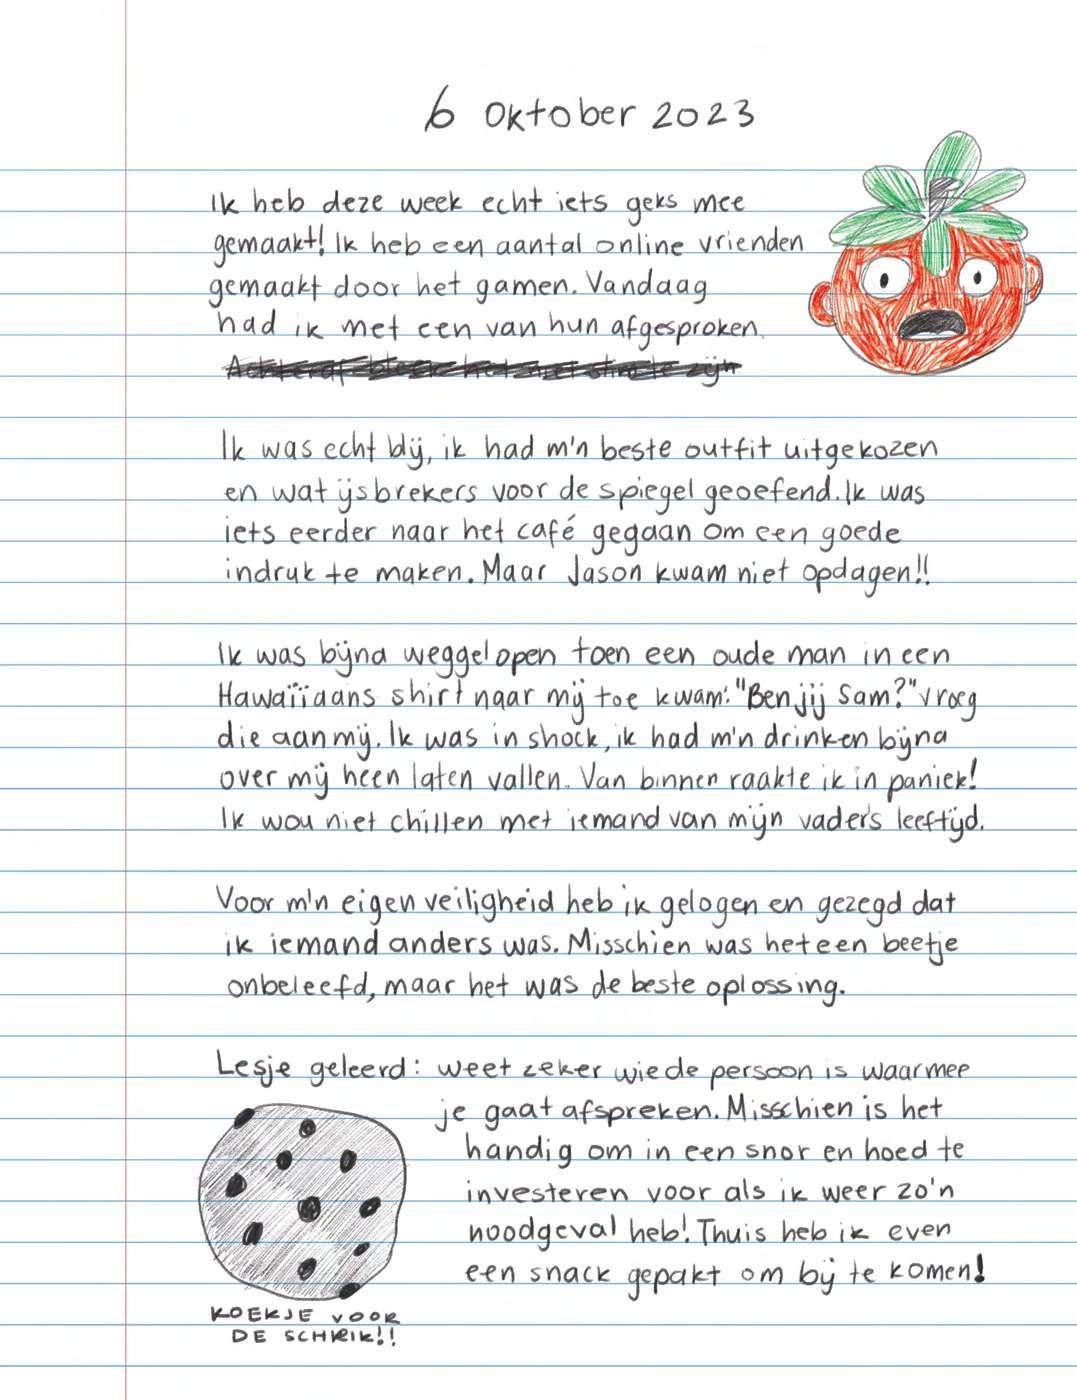 6 oktober 2023
Ik heb deze week echt iets geks mee
gemaakt! Ik heb een aantal online vrienden
gemaakt door het gamen. Vandaag
had ik met een van hun afgesproken.
Ik was echt blij, ik had m'n beste outfit uitgekozen
en wat ijsbrekers voor de spiegel geoefend. Ik was
iets eerder naar het café gegaan om een goede
indruk te maken. Maar Jason kwam niet opdagen!!
Ik was bijna weggelopen toen een oude man in een
Hawaïïaans shirt naar mij toe kwam: "Ben jij Sam?" vroeg
die aan mij. Ik was in shock, ik had m'n drinken bijna
over mij heen laten vallen. Van binnen raakte ik in paniek!
Ik wou niet chillen met iemand van mijn vader's leeftijd.
Voor m'n eigen veiligheid heb ik gelogen en gezegd dat
ik iemand anders was. Misschien was het een beetje
onbeleefd, maar het was de beste oplossing.
Lesje geleerd: weet zeker wie de persoon is waarmee
je gaat afspreken. Misschien is het
handig om in een snor en hoed te
investeren voor als ik weer zo'n
noodgeval heb! Thuis heb ik even
een snack gepakt om bij te komen!
KOEKJE VOOR
DE SCHRIK!!